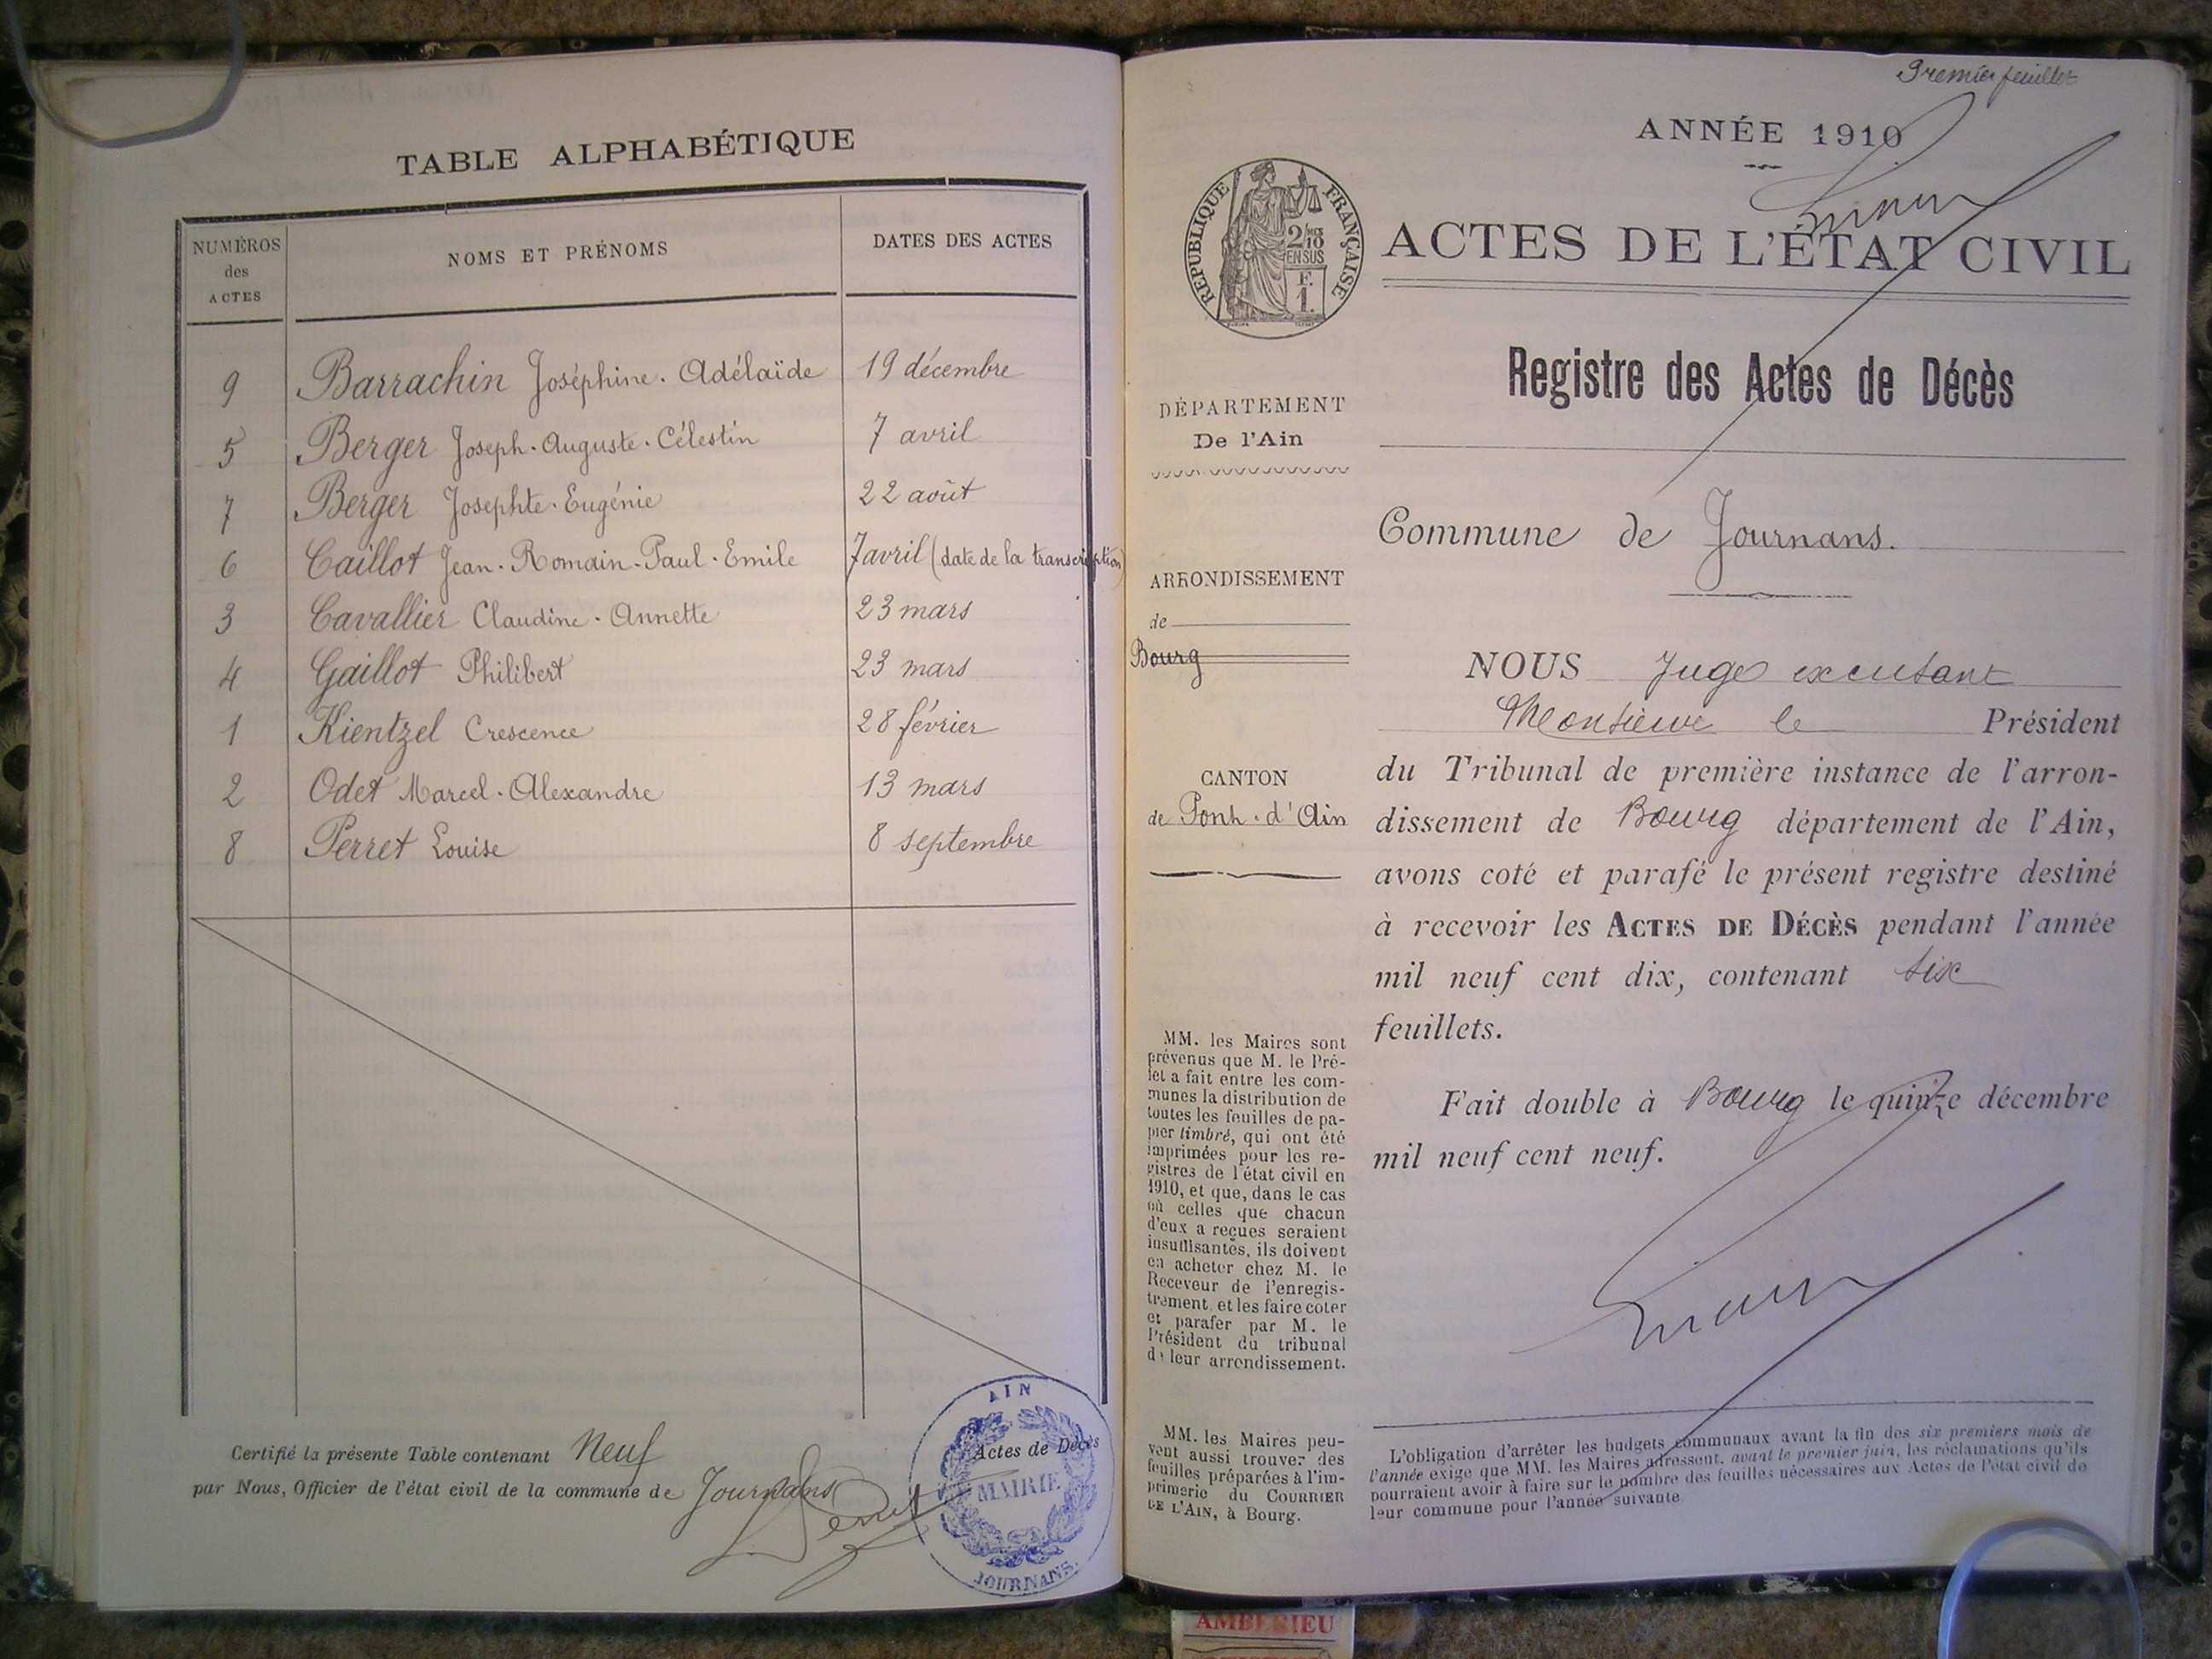 TABLE ALPHABÉTIQUE
NUMÉROS
des
ACTES
NOMS ET PRÉNOMS
DATES DES ACTES
9 Barrachin Joséphine. Adélaïde 19 décembre
5 Berger Joseph. Auguste. Célestin 7 avril
7 Berger Josephte. Eugénie 22 août
6 Caillot Jean. Romain. Paul. Emile 7 avril (date de la transcription)
3 Cavallier Claudine. Annette 23 mars
4 Gaillot Philibert 23 mars
1 Kientzel Crescence 28 février
2 Odet Marcel. Alexandre 13 mars
8 Perret Louise 8 septembre
Certifié la présente Table contenant Neuf Actes de Décès
par Nous, Officier de l'état civil de la commune de Journans
Perret
AIN
MAIRIE
JOURNANS.
Premier feuillet
ANNÉE 1910
RÉPUBLIQUE FRANÇAISE
2/10
EN SUS
F.
1.
ACTES DE L'ÉTAT CIVIL
Registre des Actes de Décès
DÉPARTEMENT
De l'Ain
ARRONDISSEMENT
de
Bourg
CANTON
de Pont. d'Ain
MM. les Maires sont
prévenus que M. le Pré-
fet a fait entre les com-
munes la distribution de
toutes les feuilles de pa-
pier timbré, qui ont été
imprimées pour les re-
gistres de l'état civil en
1910, et que, dans le cas
où celles que chacun
d'eux a reçues seraient
insuffisantes, ils doivent
en acheter chez M. le
Receveur de l'enregis-
trement, et les faire coter
et parafer par M. le
Président du tribunal
de leur arrondissement.
MM. les Maires peu-
vent aussi trouver des
feuilles préparées à l'im-
primerie du COURRIER
DE L'AIN, à Bourg.
Commune de Journans.
NOUS Juge excusant
Monsieur le Président
du Tribunal de première instance de l'arron-
dissement de Bourg département de l'Ain,
avons coté et parafé le présent registre destiné
à recevoir les ACTES DE DÉCÈS pendant l'année
mil neuf cent dix, contenant six
feuillets.
Fait double à Bourg le quinze décembre
mil neuf cent neuf.
L'obligation d'arrêter les budgets communaux avant la fin des six premiers mois de
l'année exige que MM. les Maires adressent, avant le premier juin, les réclamations qu'ils
pourraient avoir à faire sur le nombre des feuilles nécessaires aux Actes de l'état civil de
leur commune pour l'année suivante.
AMBERIEU